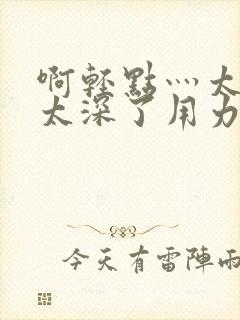 啊轻點灬太
太深了用力
今天有雷陣雨